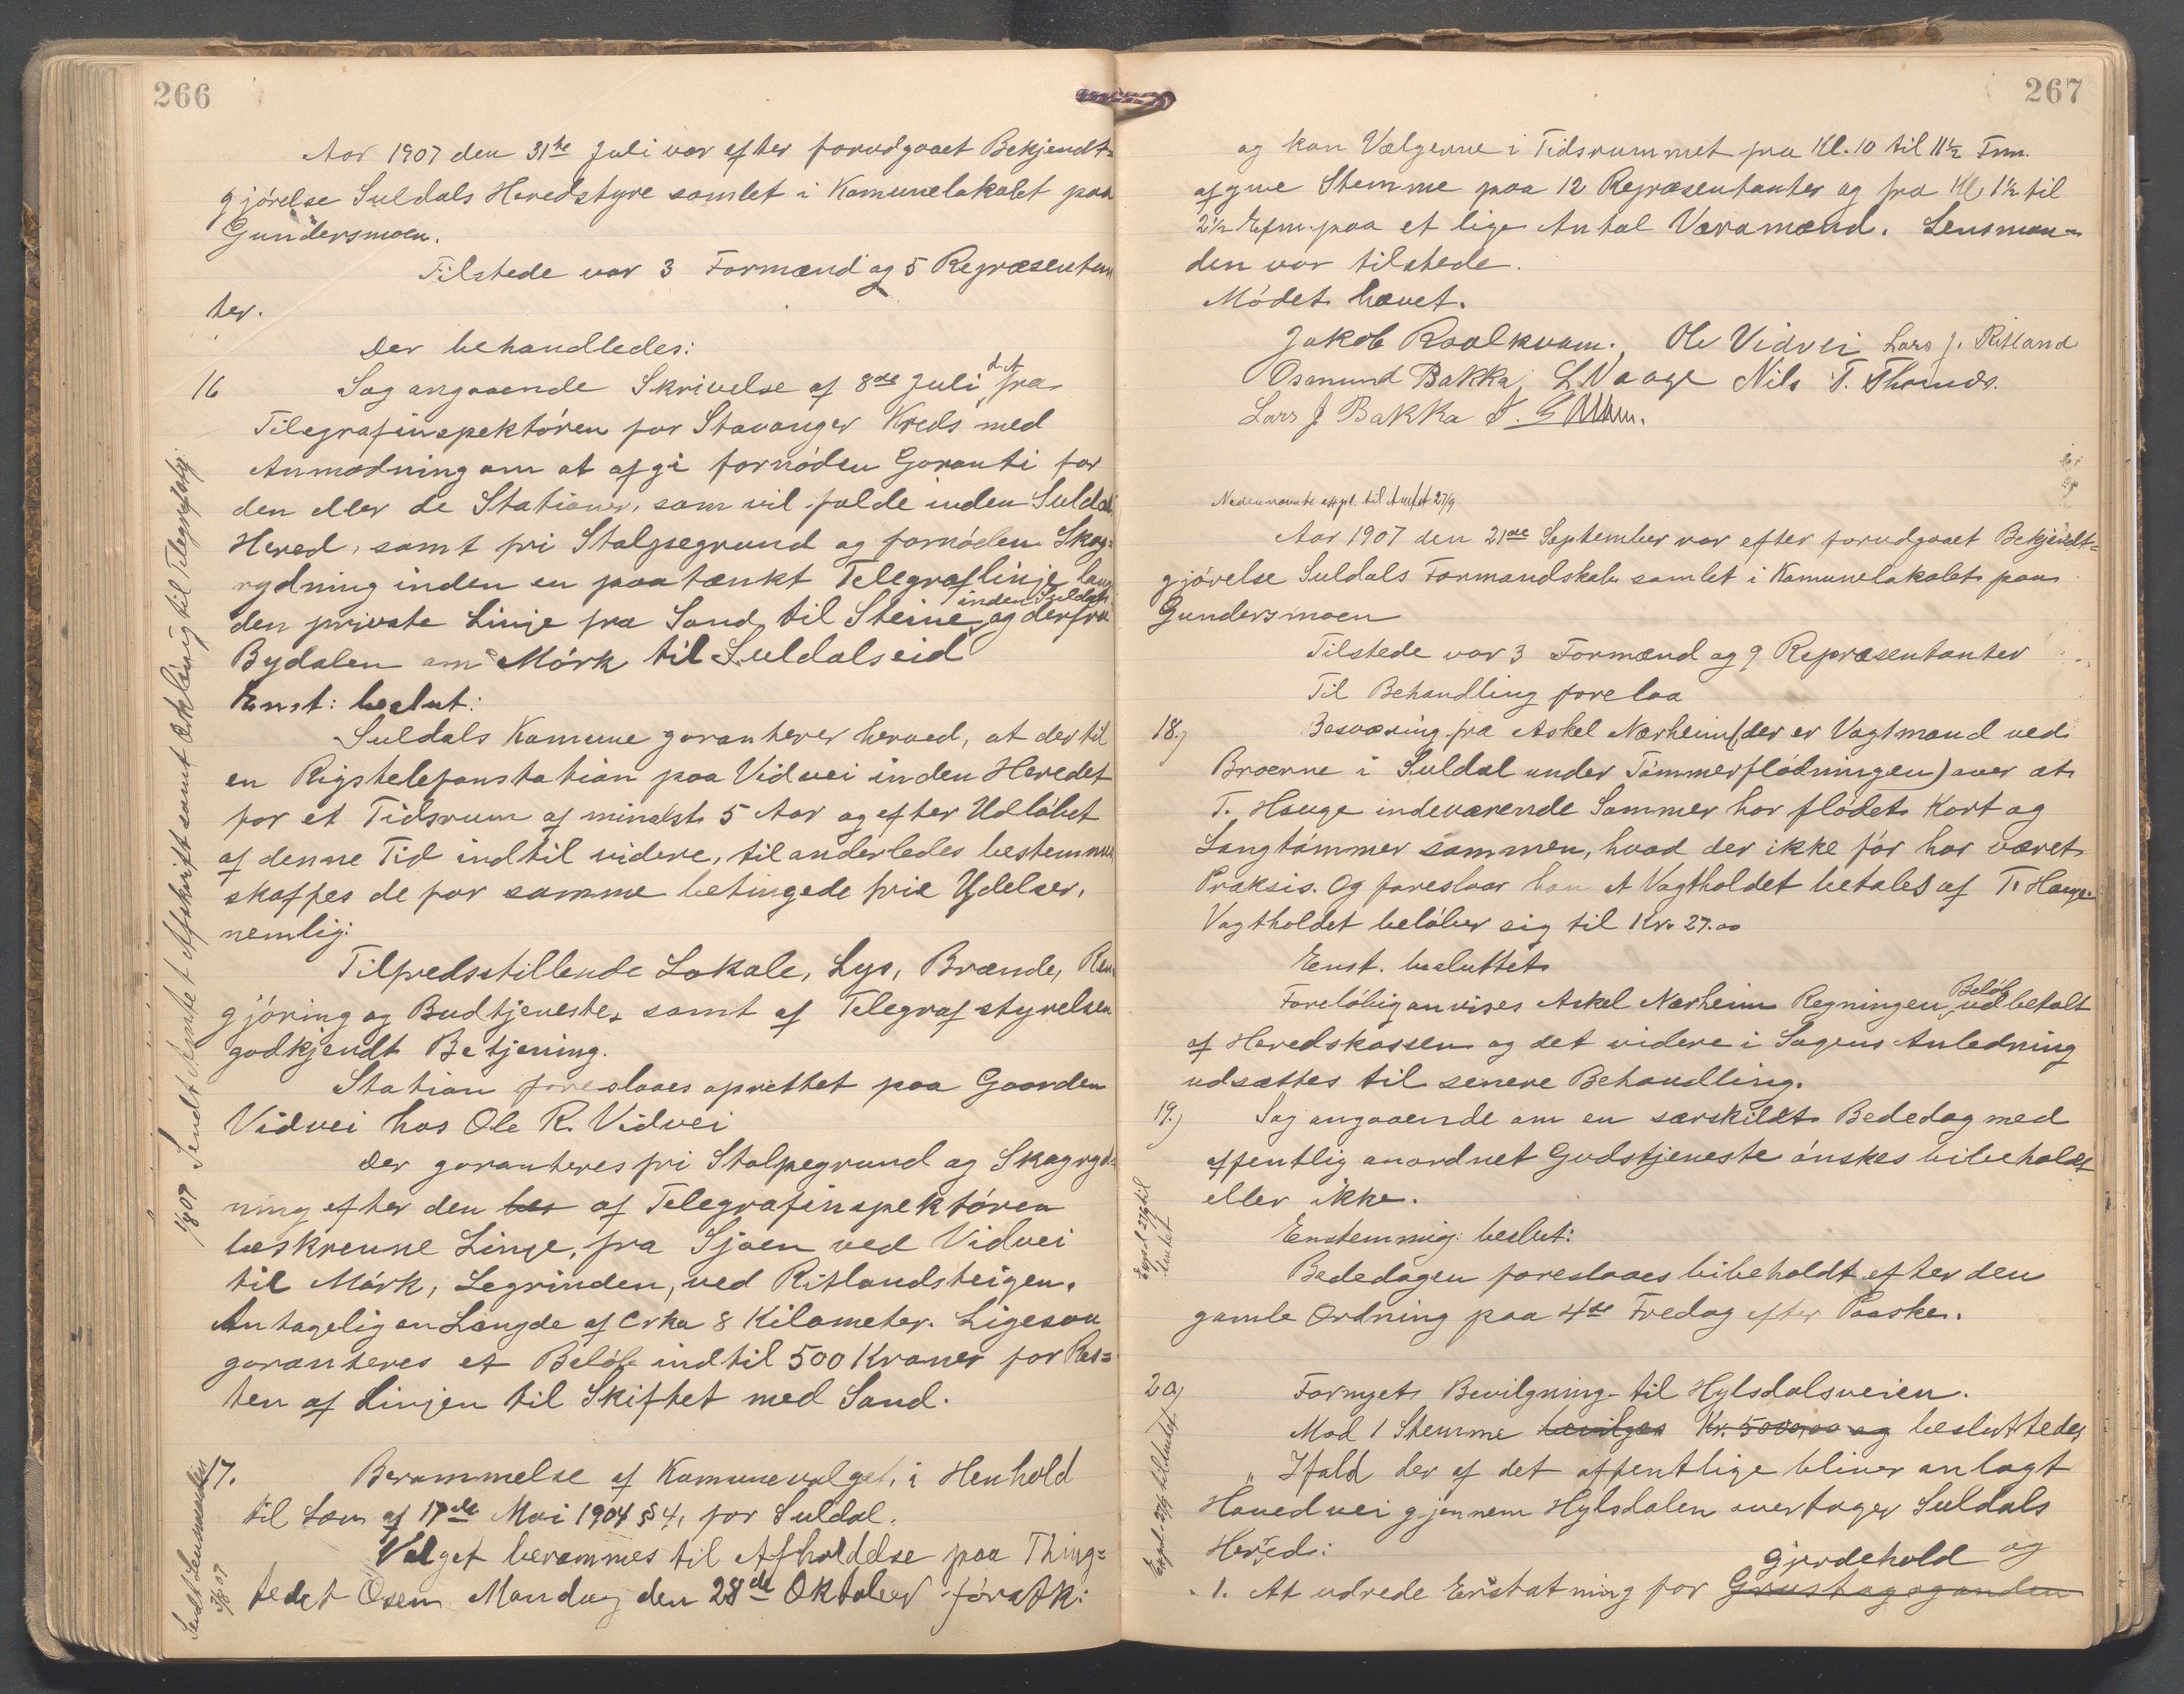 266
Aar 1907 den 31te Juli var efter forudgaaet Bekjendt=
gjörelse Suldals Heredstyre samlet i Komunelokalet paa
Gundersmoen.
Tilstede var 3 Formænd og 5 Repræsentan
ter.
Der behandledes:
16 Sag angaaende Skrivelse af 8de Juli d.A. fra
Telegrafinspektören for Stavanger Kreds med
Anmodning om at afgi fornöden Garanti for
den eller de Stationer, som vil falde inden Suldal
Hered, samt fri Stolpegrund og fornöden Skog=
rydning inden en paatænkt Telegraflinje langs
den private Linje fra Sand til Steine inden Suldal, og derfra
Bydalen om Mörk til Suldalseid
Enst: beslut:
Suldals Komune garanterer herved, at der til
en Rigstelefonstation paa Vidvei inden Heredet
for et Tidsrum af mindst 5 Aar og efter Udlöbet
af denne Tid indtil videre, til anderledes bestemmes
skaffes de for samme betingede frie Ydelser,
nemlig:
Tilfredsstillende Lokale, Lys, Brænde, Ren
gjöring og Budtjeneste, samt af Telegrafstyrelsen
godkjendt Betjening.
Station foreslaaes oprettet paa Gaarden
Vidvei hos Ole R. Vidvei
Der garanteres fri Stolpegrund og Skogryd=
ning efter den bes af Telegrafinspektören
beskrevne Linje, fra Sjoen ved Vidvei
til Mörk, Legrinden, ved Ritlandsteigen.
Antagelig en Længde af Cirka 8 Kilometer. Ligesaa
garanteres et Belöb indtil 500 Kroner for Res=
ten af Linjen til Skiftet med Sand.
17. Berammelse af Komunevalget, i Henhold
til Lov af 17de Mai 1904 § 4, for Suldal.
Valget berammes til Afholdelse paa Thing=
stedet Osen Mandag den 28de Oktober förstk:
1/8 07 Sendt Amtet Afskrift samt Erklæring til Telegrafbestg.
Sendt Lensmanden
1/8 07
267
og kan Vælgerne i Tidsrummet fra Kl. 10 til 11½ Fmm.
afgive Stemme paa 12 Repræsentanter og fra Kl. 1½ til
2½ Efm. paa et lige Antal Varamænd. Lensman=
den var tilstede.
Mödet hævet.
Jakob Roalkvam. Ole Vidvei Lars J. Ritland
Osmund Bakka, L Vaage Nils T. Thoruds.
Lars J Bakka
Nedennævnte expd. til Amtet 27/9
Aar 1907 den 21de September var efter forudgaaet Bekjendt=
gjörelse Suldals Formandskab samlet i Komunelokalet paa
Gundersmoen
Tilstede var 3 Formænd og 9 Repræsentanter
Til Behandling forelaa
18.) Besværing fra Askel Nærheim (der er Vagtmand ved
Broerne i Suldal under Tömmerflödningen) over at
T. Hauge indeværende Sommer har flödet Kort og
Langtömmer sammen, hvad der ikke för har været
Praksis. Og foreslaar han at Vagtholdet betales af T. Hauge.
Vagtholdet belöber sig til Kr. 27.00
Enst. besluttet
Foreløbig anvises Askel Nærheim Regningens Belöb udbetalt
af Heredskassen og det videre i Sagens Anledning
udsættes til senere Behandling.
19.) Sag angaaende om en særskildt Bededag med
offentlig anordnet Gudstjeneste önskes bibeholdt
eller ikke.
Enstemmig beslut:
Bededagen foreslaaes bibeholdt efter den
gamle Ordning paa 4de Fredag efter Paaske.
Expd. 27/9 til
Amtet
20) Fornyet Bevilgning til Hylsdalsveien.
Mod 1 Stemme bevilges Kr. 5000,00 og besluttedes
"Ifald der af det offentlige bliver anlagt
Hovedvei gjennem Hylsdalen overtager Suldals
Hered:
1. At udrede Erstatning for Grustag og anden gjerdehold og
Expd. 27/9 til Amtet